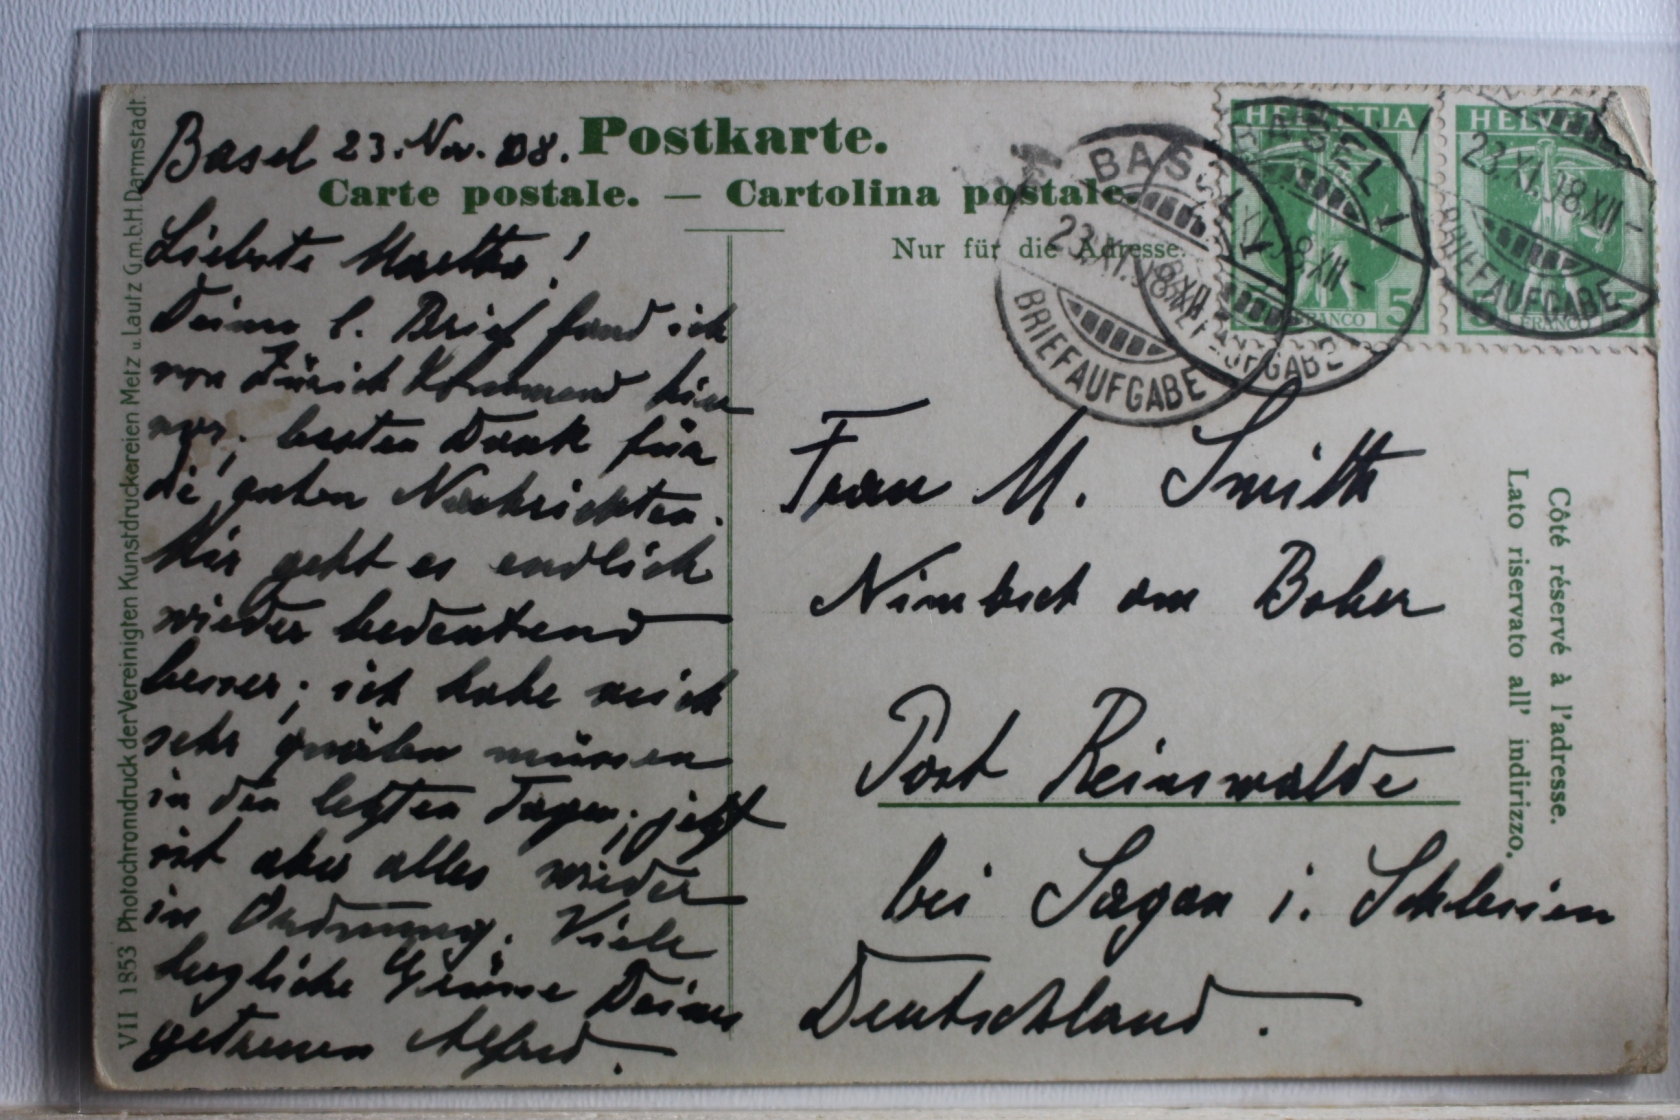 Basel 23. Nov. 08.
Postkarte.
Carte postale. — Cartolina postale.
Nur für die Adresse.
Liebste Martha!
Deinen l. Brief fand ich
von Zürich kommend hier
vor; besten Dank für
die guten Nachrichten.
Mir geht es endlich
wieder bedeutend
besser; ich habe mich
sehr quälen müssen
in den letzten Tagen; jetzt
ist aber alles wieder
in Ordnung. Viele
herzliche Grüsse Deines
getreuen Alfred.
Frau M. Smith
am Bober
Post Reinswalde
bei Sagan i. Schlesien
Deutschland.
Côté réservé à l'adresse.
Lato riservato all' indirizzo.
VII 1853 Photochromdruck der Vereinigten Kunstdruckereien Metz u. Lautz G.m.b.H. Darmstadt.
HELVETIA
5
FRANCO
HELVETIA
5
FRANCO
BASEL 1
23.XI.08.XII-
BRIEFAUFGABE
BASEL 1
23.XI.08.XII-
BRIEFAUFGABE
23.XI.08.XII-
BRIEFAUFGABE